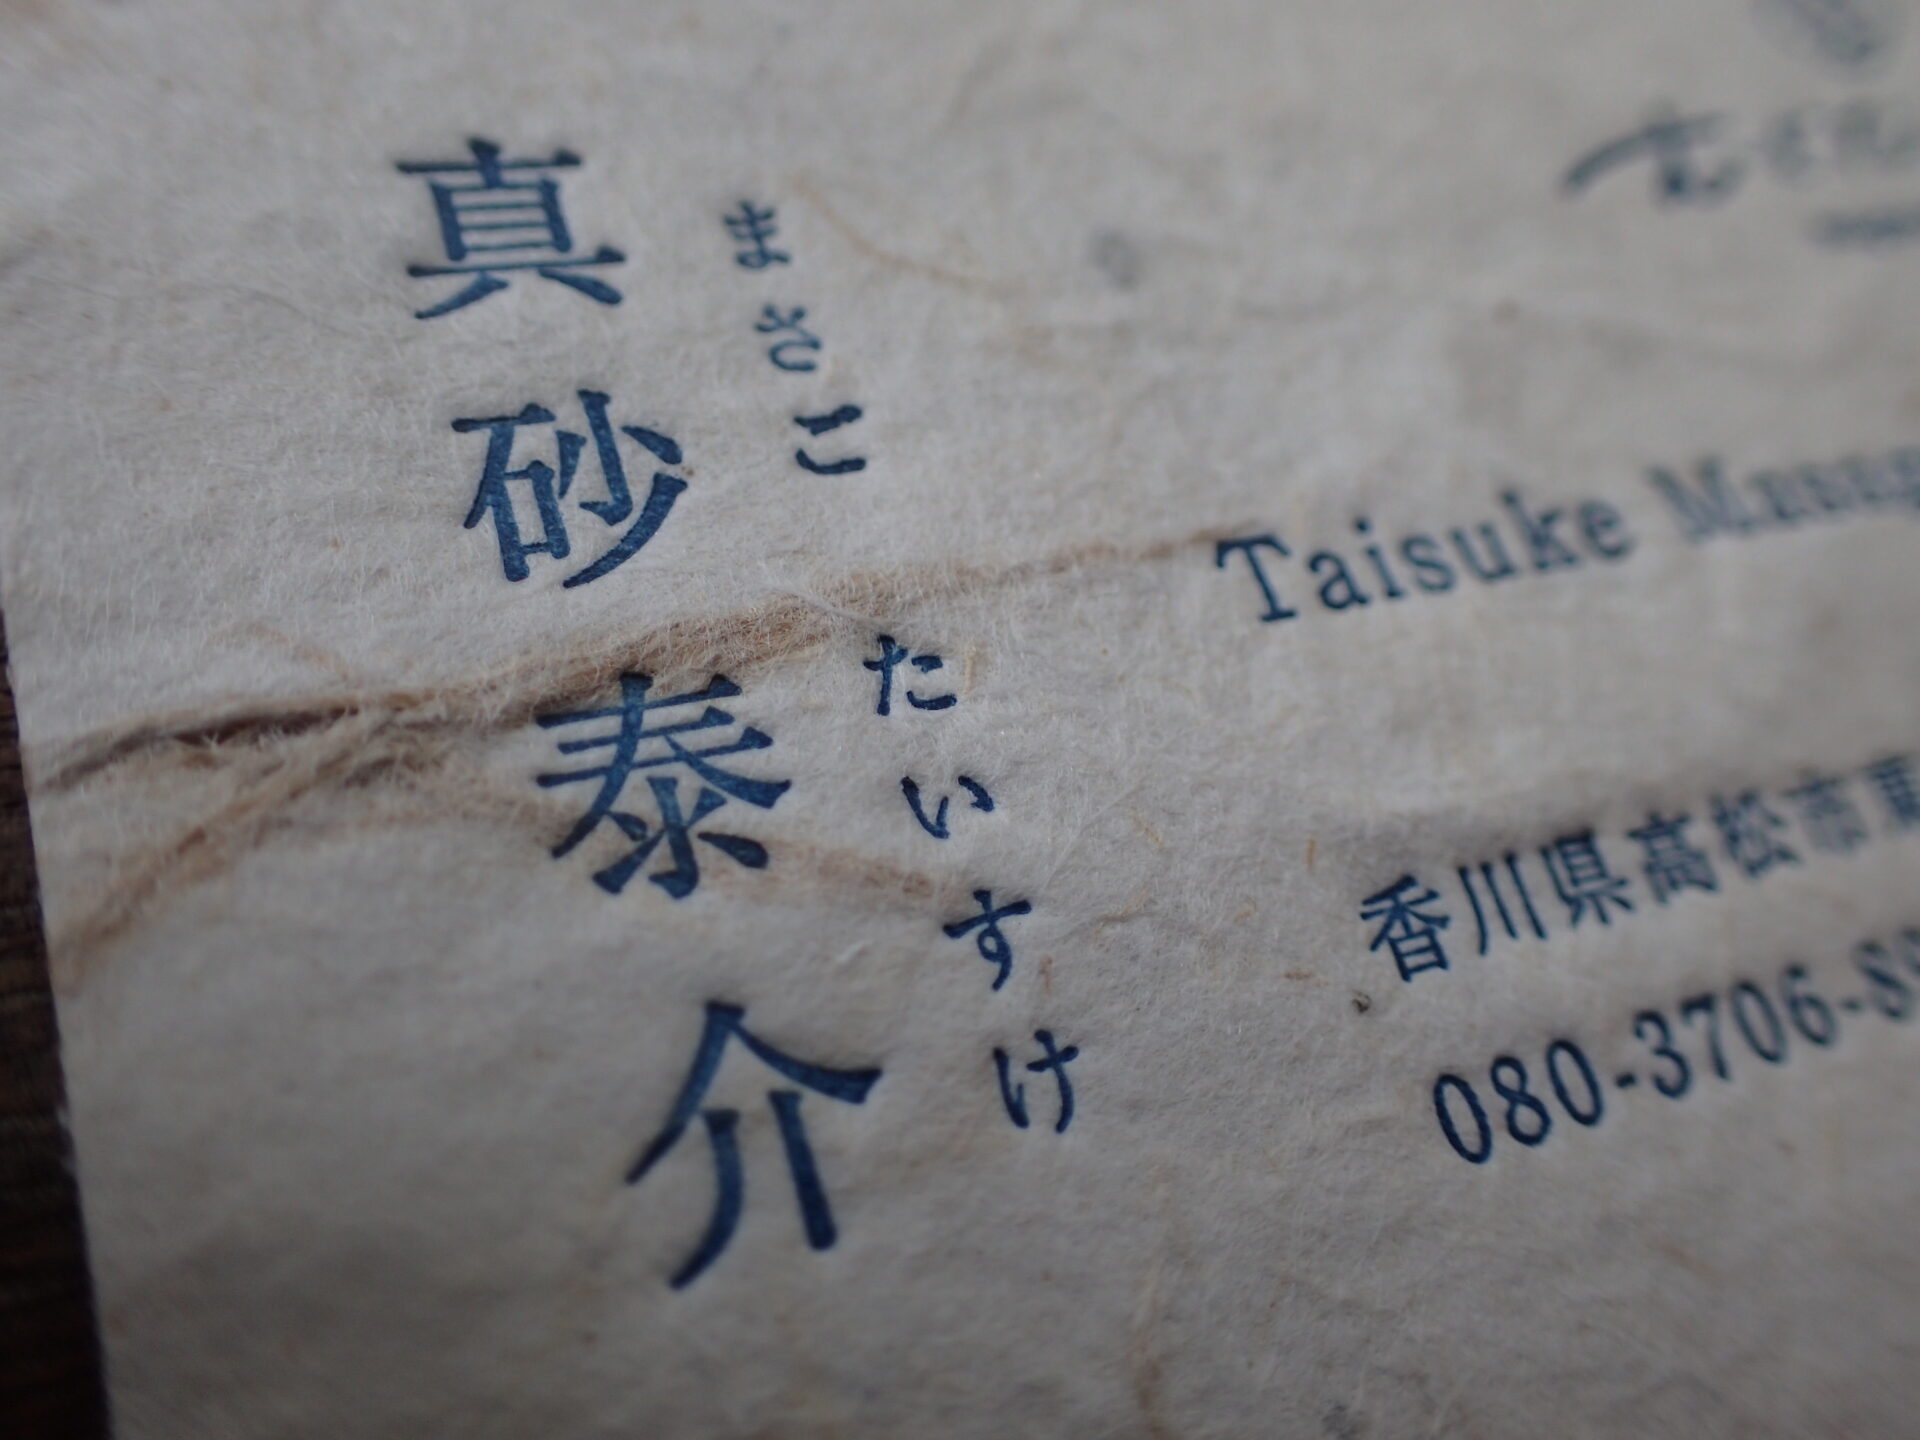 真砂泰介
まさこ
たいすけ
Taisuke
香川県高松市
080-3706-8